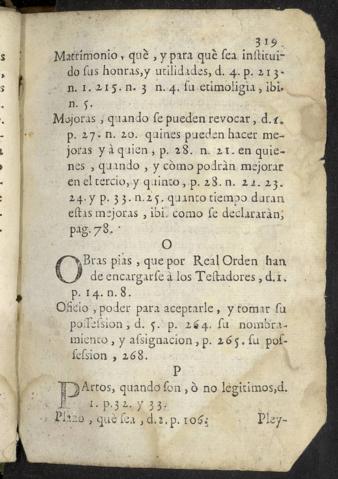 319
Matrimonio, què, y para què sea institui-
do sus honras, y utilidades, d. 4. p. 213.
n. 1. 215. n. 3 n. 4. su etimoligia, ibi.
n. 5.
Mejoras, quando se pueden revocar, d. 1.
p. 27. n. 20. quines pueden hacer me-
joras y à quien, p. 28. n. 21. en quie-
nes, quando, y còmo podràn mejorar
en el tercio, y quinto, p. 28. n. 22. 23.
24. y p. 33. n. 25. quanto tiempo duran
estas mejoras, ibi. como se declararàn;
pag. 78.
O
OBras pias, que por Real Orden han
de encargarse à los Testadores, d. 1.
p. 14. n. 8.
Oficio, poder para aceptarle, y tomar su
possession, d. 5. p. 264. su nombra-
miento, y assignacion, p. 265. su pos-
session, 268.
P
PArtos, quando son, ò no legitimos, d.
1. p. 32. y 33.
Plazo, què sea, d. 2. p. 106. Pley-